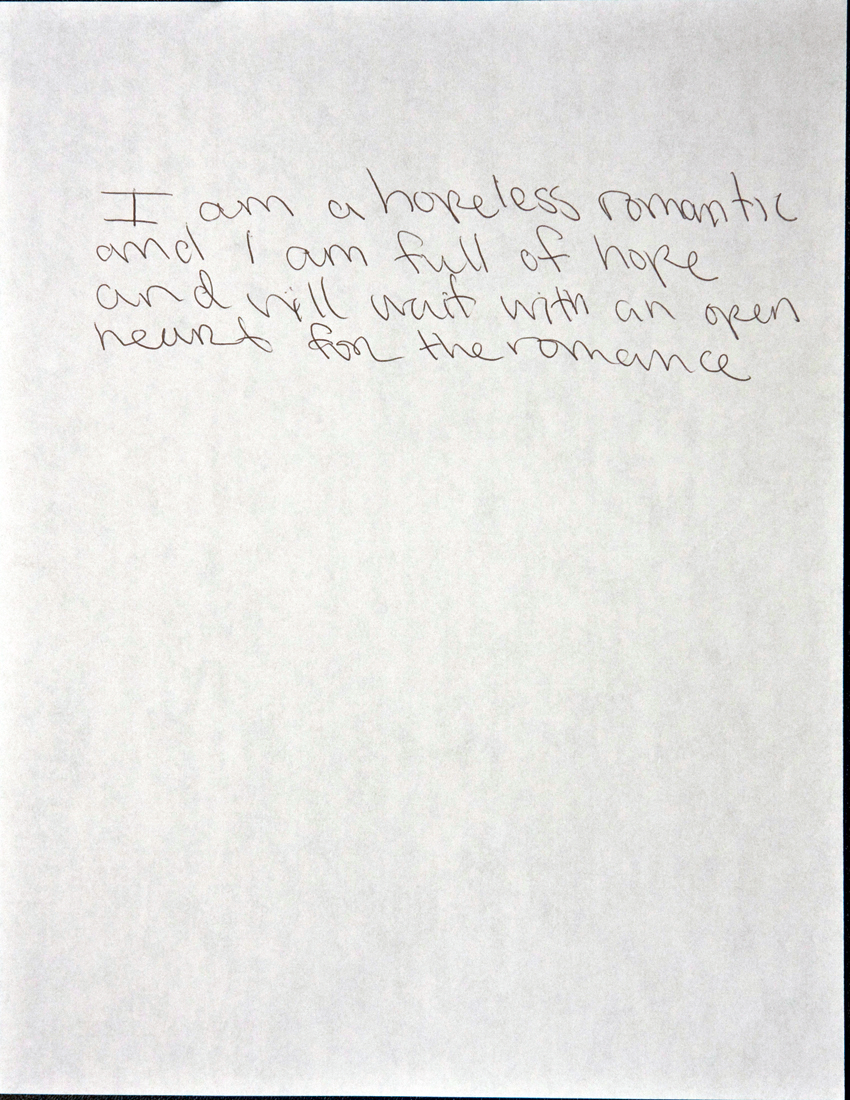 I am a hopeless romantic
and I am full of hope
and will wait with an open
heart for the romance